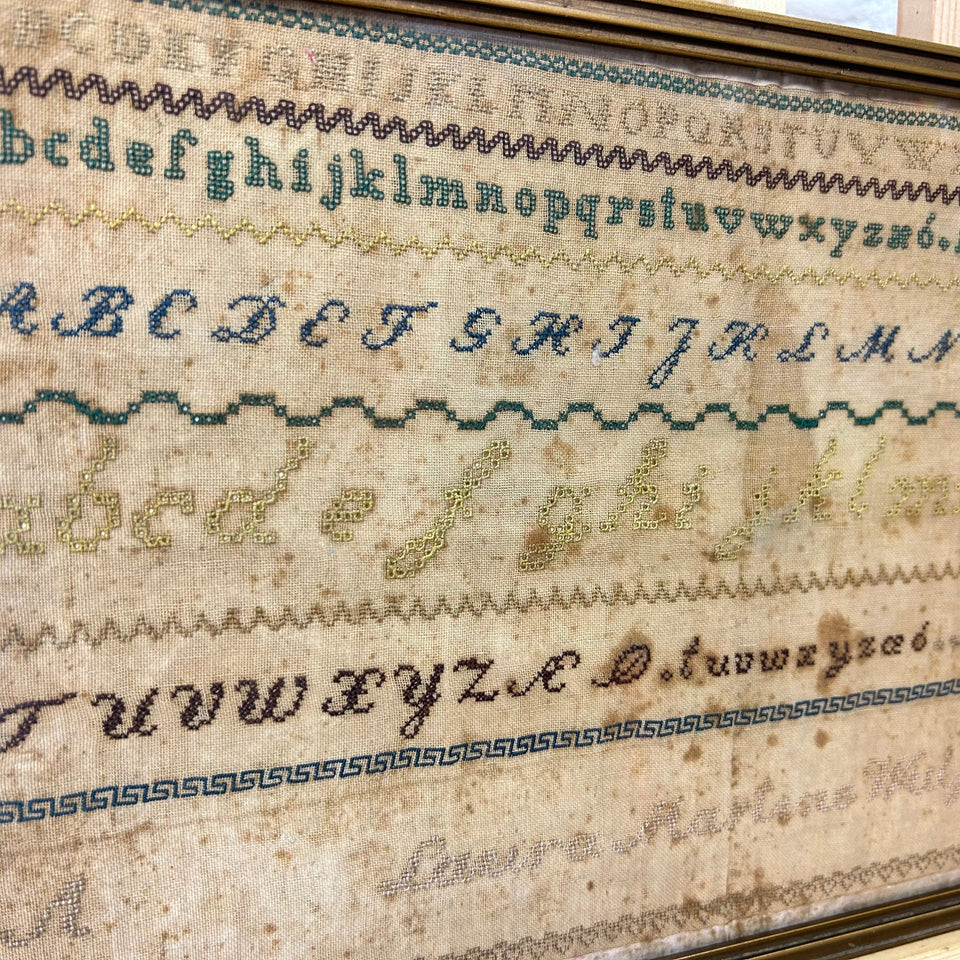 BCDEFGHIJKLMNOPQRSTUVW
bcdefghijklmnopqrstuvwxyzæó.
ABCDEFGHIJJKLMN
abcdefghijklm
TUVWXYZÆØ.tuvwxyzæó.
A Laura Martine